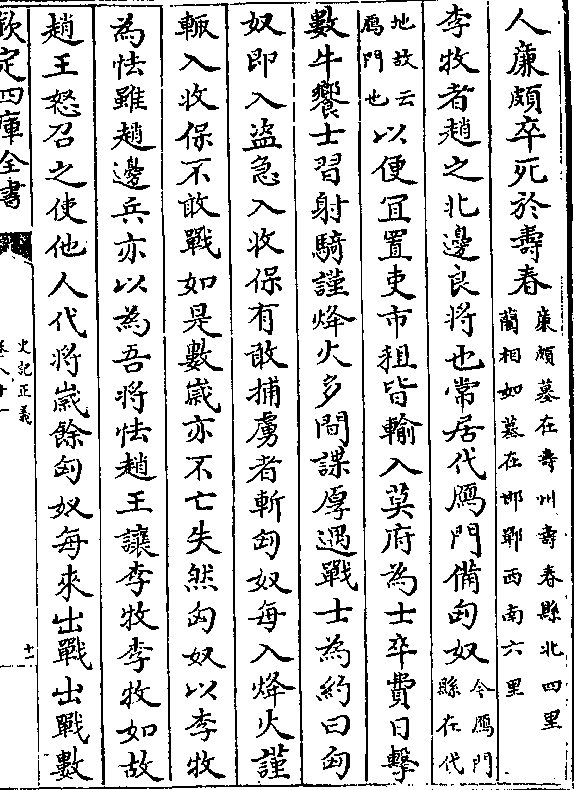 人廉頗卒死於壽春廉頗墓在壽州壽春縣北四里
藺相如墓在邯鄲西南六里
李牧者趙之北邊良將也常居代鴈門備匈奴今鴈門
縣在代
地故云
鴈門也以便宜置吏市租皆輸入莫府為士卒費日擊
數牛饗士習射騎謹烽火多間諜厚遇戰士為約曰匈
奴即入盜急入收保有敢捕虜者斬匈奴每入烽火謹
輒入收保不敢戰如是數歲亦不亡失然匈奴以李牧
為怯雖趙邊兵亦以為吾將怯趙王讓李牧李牧如故
趙王怒召之使他人代將歲餘匈奴每來出戰出戰數
欽定四庫全書
史記正義
卷八十一
十一